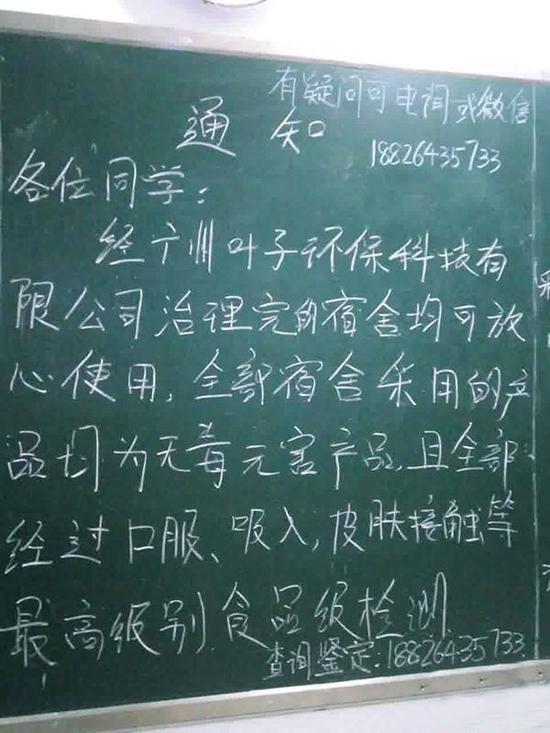 有疑问可电询或微信
18826435733
通知
各位同学：
经广州叶子环保科技有
限公司治理完的宿舍均可放
心使用，全部宿舍采用的产
品均为无毒无害产品，且全部
经过口服、吸入，皮肤接触等
最高级别食品级检测
查询鉴定：18826435733